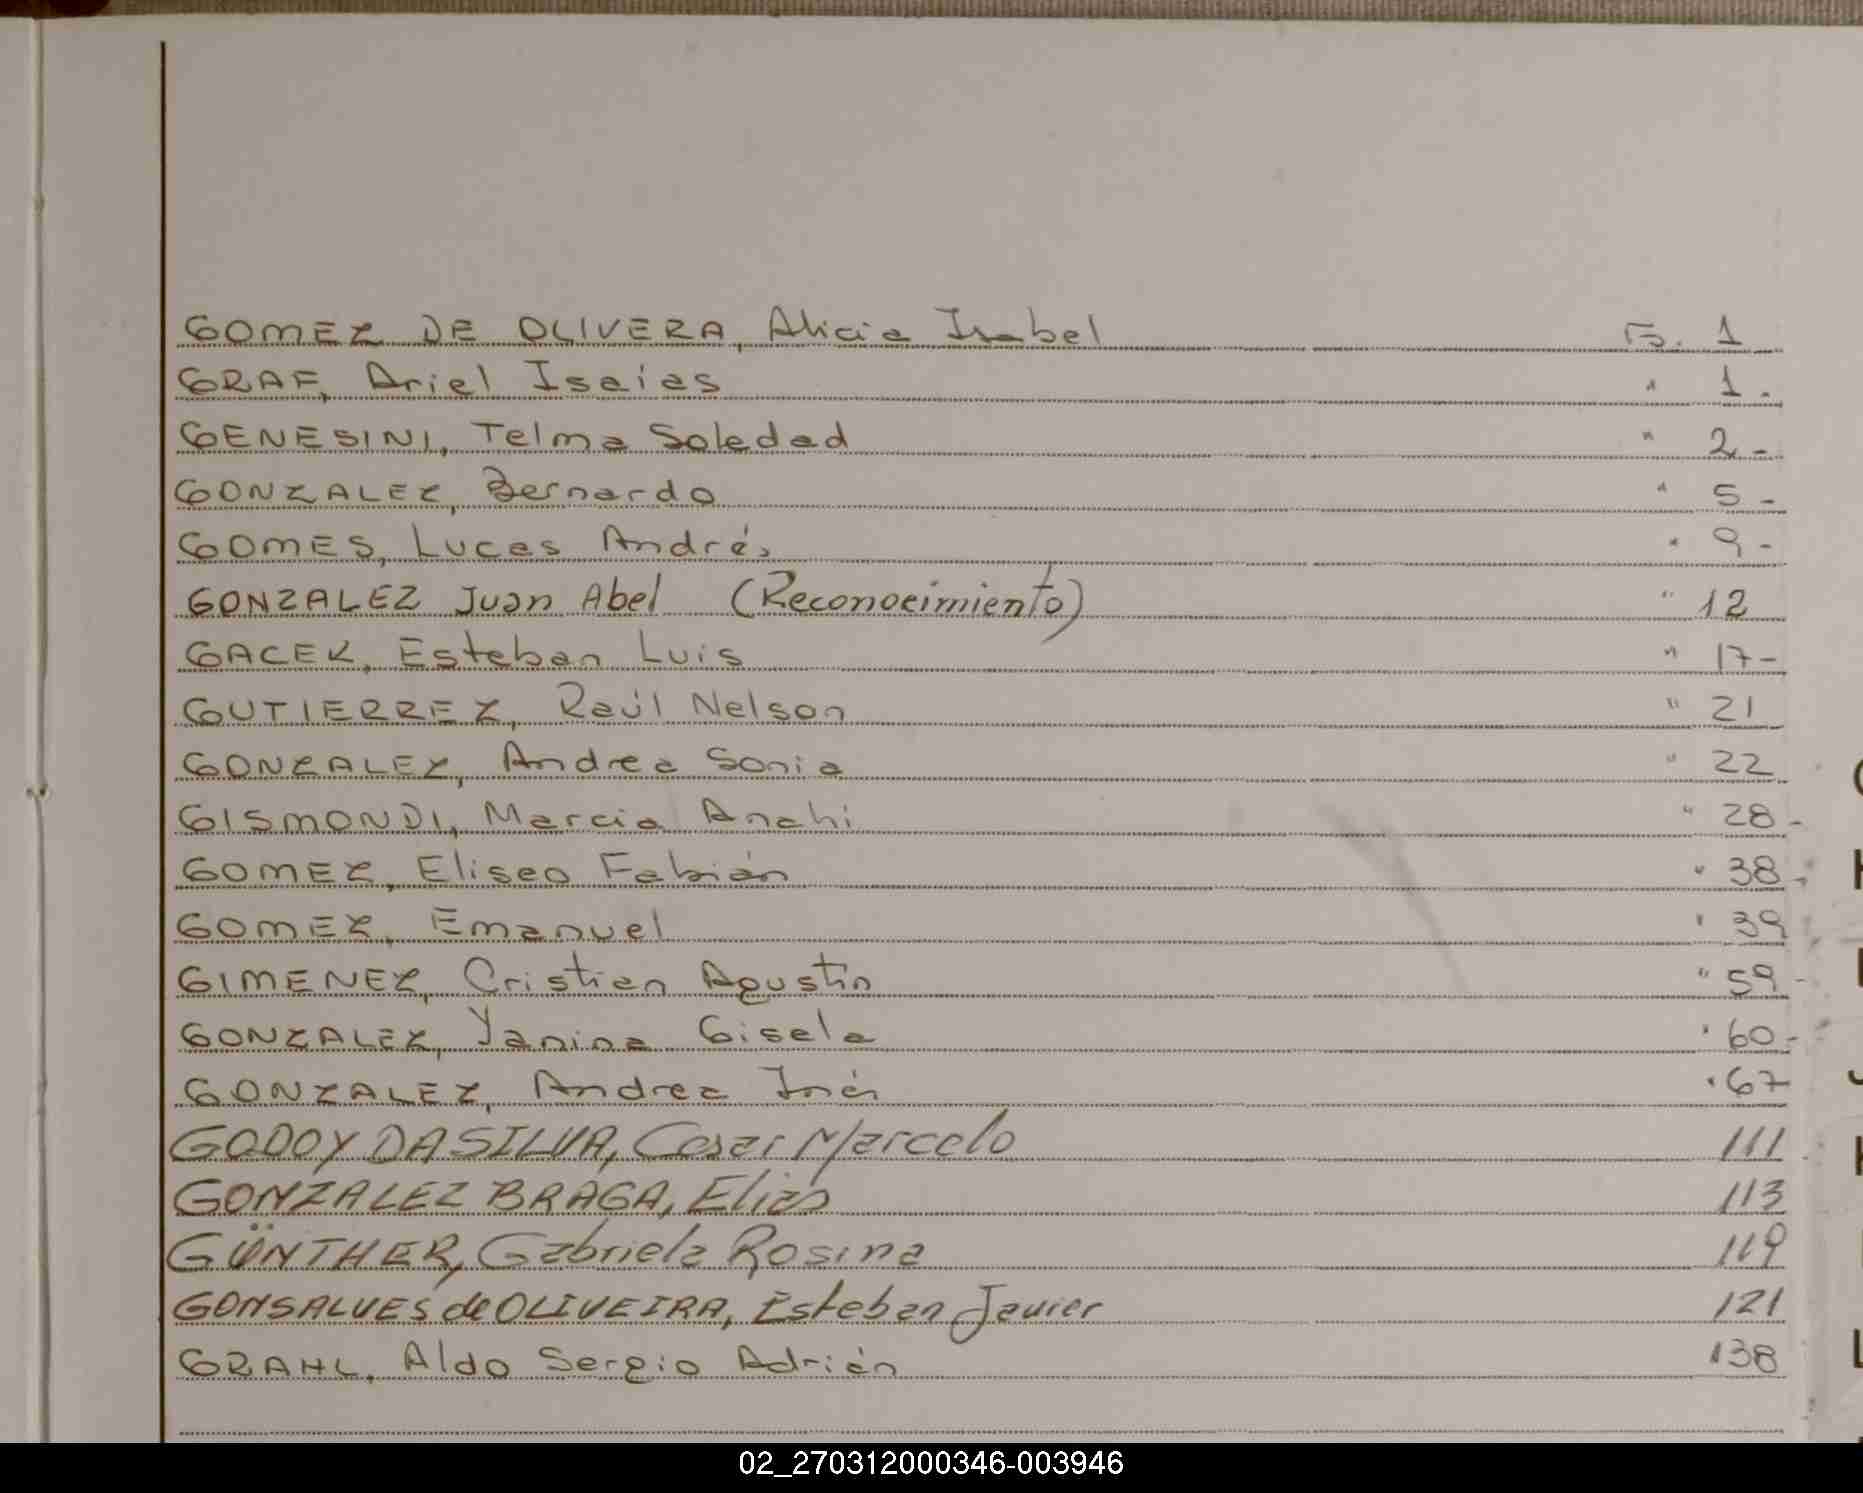 GOMEZ DE OLIVERA, Alicia Isabel Fs. 1
GRAF, Ariel Isaías " 1.
GENESINI, Telma Soledad " 2-
GONZALEZ, Bernardo " 5-
GOMES, Lucas Andrés " 9-
GONZALEZ Juan Abel (Reconocimiento) " 12
GACEK, Esteban Luis " 17-
GUTIERREZ, Raúl Nelson " 21
GONZALEZ, Andrea Sonia " 22
GISMONDI, Marcia Anahi " 28-
GOMEZ, Eliseo Fabián " 38-
GOMEZ, Emanuel " 39
GIMENEZ, Cristian Agustin " 59-
GONZALEZ, Yanina Gisela " 60-
GONZALEZ, Andrea Inés " 67
GODOY DA SILVA, Cesar Marcelo 111
GONZALEZ BRAGA, Elias 113
GÜNTHER, Gabriela Rosina 119
GONSALVES de OLIVEIRA, Esteban Javier 121
GRAHL, Aldo Sergio Adrián 138
02_270312000346-003946